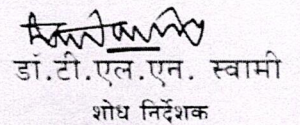 डॉ.टी.एल.एन. स्वामी
शोध निर्देशक